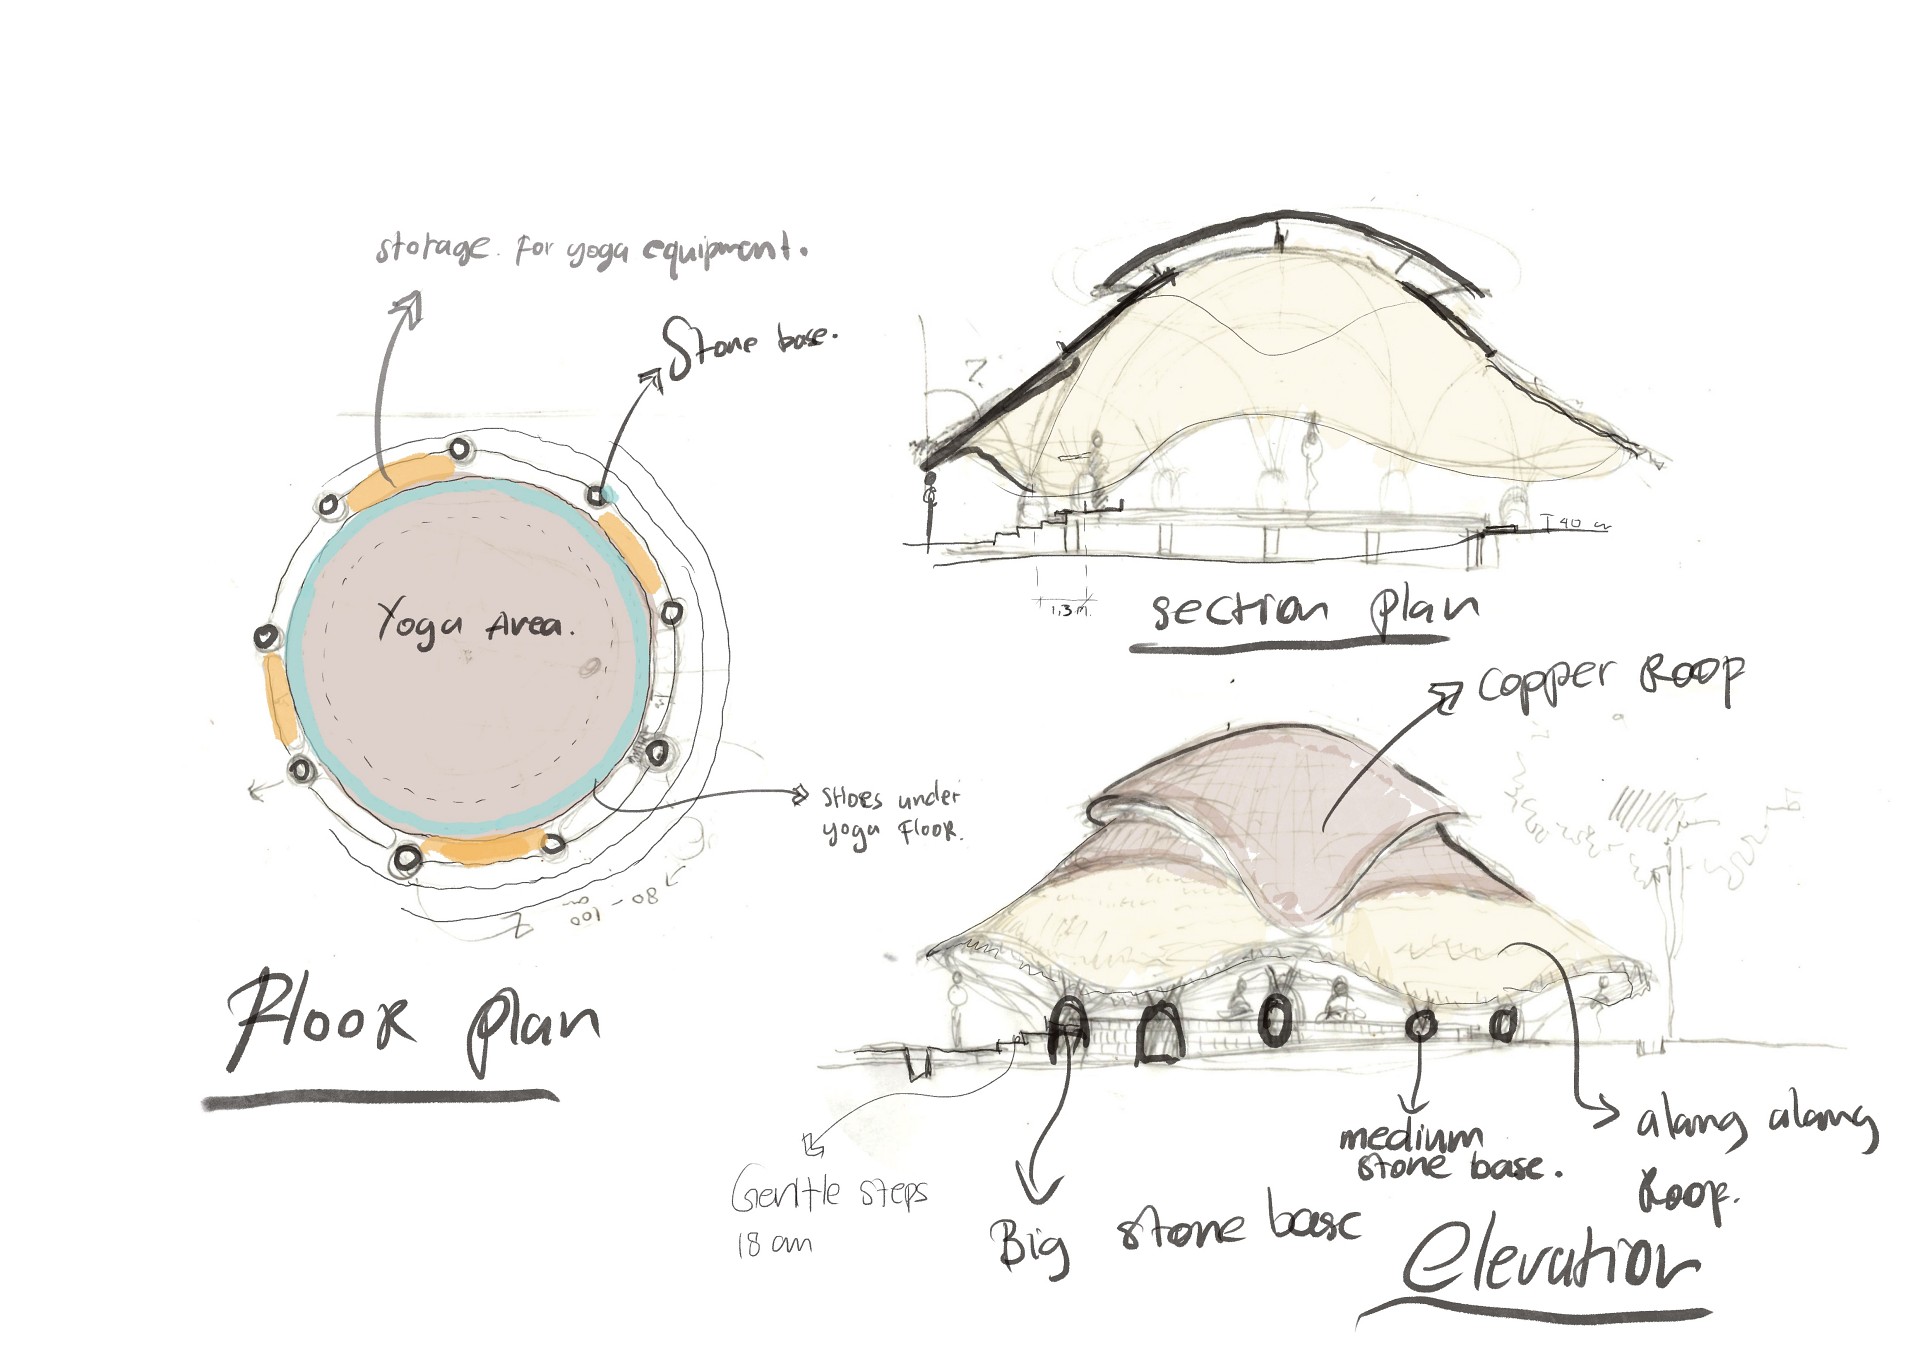 storage. For yoga equipment.
Stone base.
Yoga Area.
SHOES under
yoga Floor.
80 - 100
cm
Floor plan
?
40 cm
1,3 m.
section plan
copper Roof
Gentle steps
18 cm
Big stone base
medium
stone base.
alang alang
Roof.
elevation